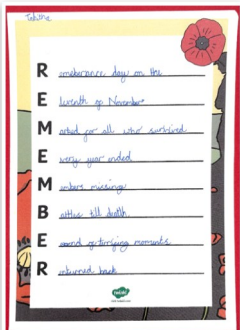 Tabitha
Remeberance day on the
Eleventh of November
Marked for all who survived
Every year ended
Members missing
Battles till death
Eound terrifying moments
Returned back
twinkl